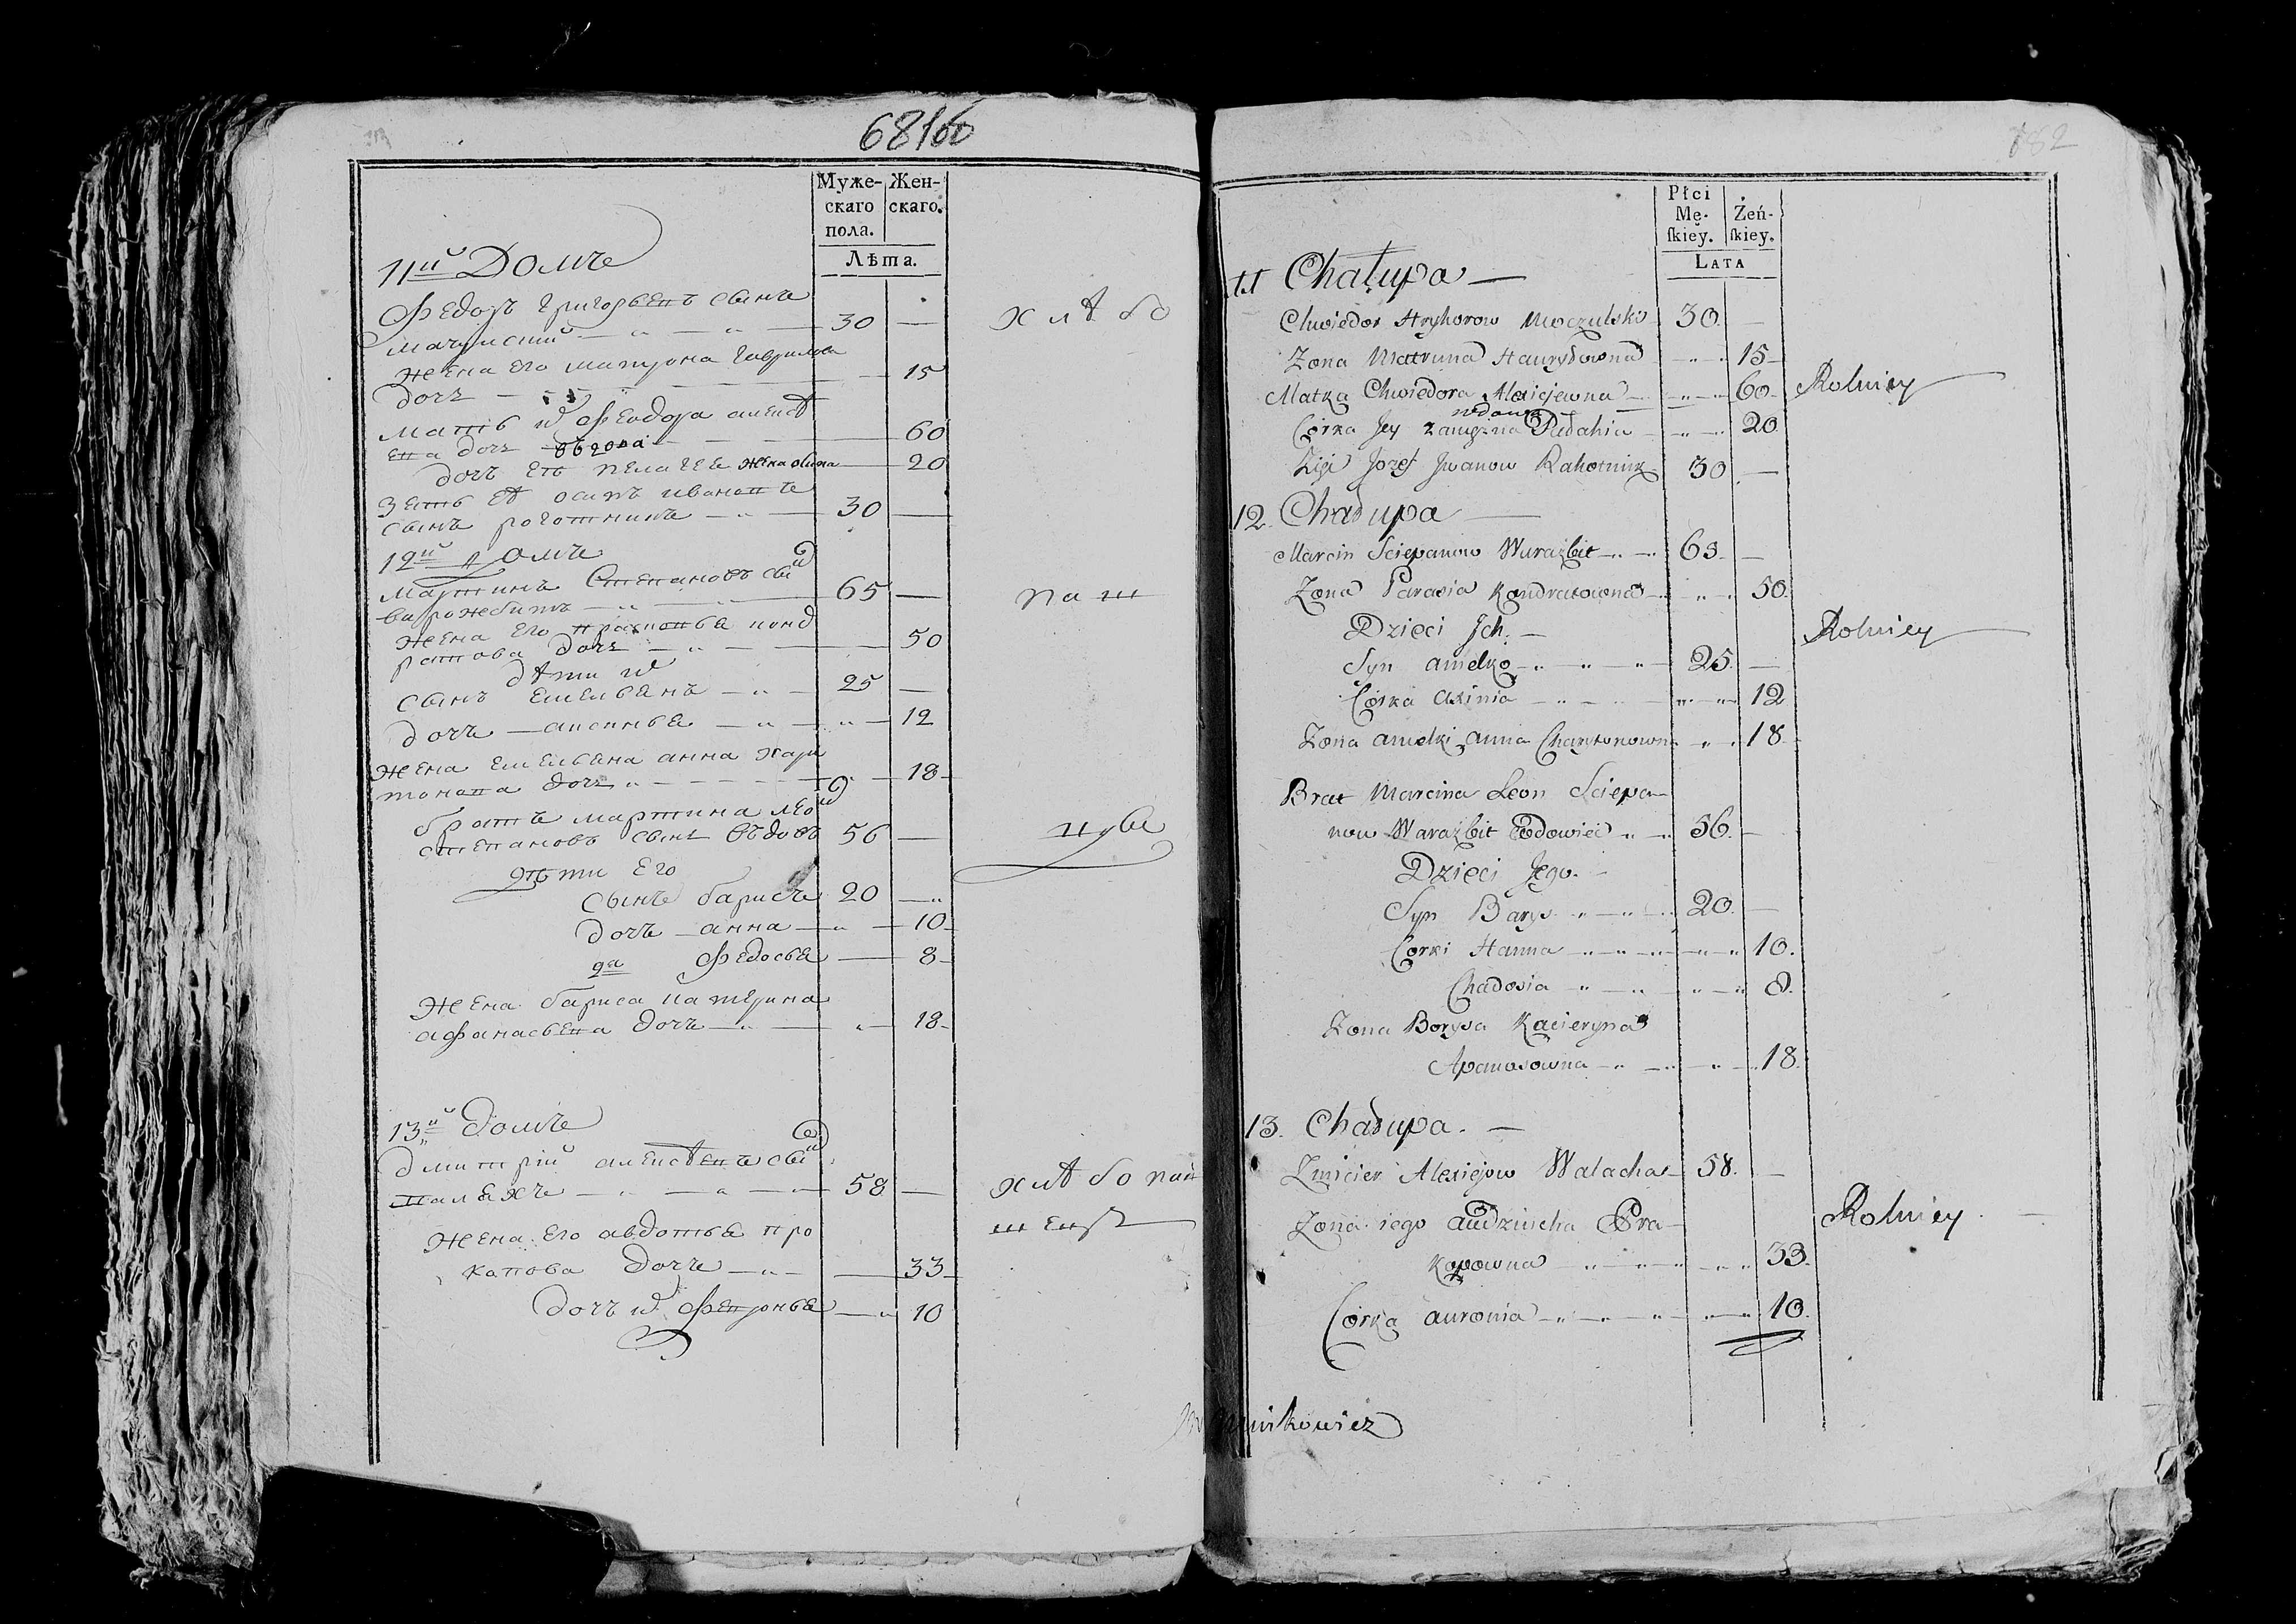 6816
Муже-
скаго
пола.
Жен-
скаго.
Лѣта.
11й Домъ
Федоръ Григорьевъ сынъ
мачулский — „ — „ — 30 —
жена его матрона гаврилова
дочь — — 15
мать их Феодора алексѣ
ева дочь вдова — — 60
дочь ее пелагея жена осипа — 20
зять ее осипъ ивановъ
сынъ роготникъ — „ — 30 —
хлѣбо
12й домъ
Мартинъ Степановъ сы
варожбитъ — „ — 65 —
жена его прасковья конд
ратова дочь — „ — 50
дѣти их
сынъ емельянъ — „ — 25 —
дочь — аксинья — „ — „ — 12
жена емельяна анна хари
тонова дочь „ — 18
братъ мартина лео
степановъ сынъ вѣдовъ 56 —
дѣти его
сынъ барисъ 20 — „
дочь — анна — „ — 10
2я Федосья — 8
жена бариса катерина
афанасьева дочь — „ — „ — 18
паш
цы
13й домъ
дмитрій алексѣевъ сы
валахъ — „ — „ — 58 —
жена его авдотья про
капова дочь — „ — 33
дочь их февронья — „ 10
хлѣбопаш
882
Płci
Mę-
skiey.
Żeń-
skiey.
LATA
11 Chałupa —
Chwiedor Hryhorow Moczulski 30. —
Zona Matruna Hauryłowna — „ 15
Matka Chwiedora Alexiejewna wdowa — „ — 60
Corka Jey zamęzna Pełahia — „ 20
Zięć Jozef Jwanow Rahotnik 30 —
Rolnicy
12. Chałupa —
Marcin Sciepanow Warażbit „ 65 —
Zona Parasia Kondratowna „ „ 50
Dzieci Jch. —
Syn Amelko „ „ „ 25. —
Corka Axinia — „ — „ — 12
Zona Amelki Anna Charytonowna „ 18
Rolnicy
Brat Marcina Leon Sciepa—
now Warażbit Wdowiec „ 56. —
Dzieci Jego. —
Syn Barys „ — „ 20. —
Corki Hanna „ „ „ „ 10.
Chadosia „ — „ „ — „ 8.
Zona Borysa Kacieryna
Apanasowna — „ — „ — „ 18.
13. Chałupa. —
Zmicier Alexiejow Walacha 58. —
Zona iego Audziucha Pra—
kopowna „ „ „ „ 33.
Corka Auronia — „ — „ — „ 10.
Rolnicy